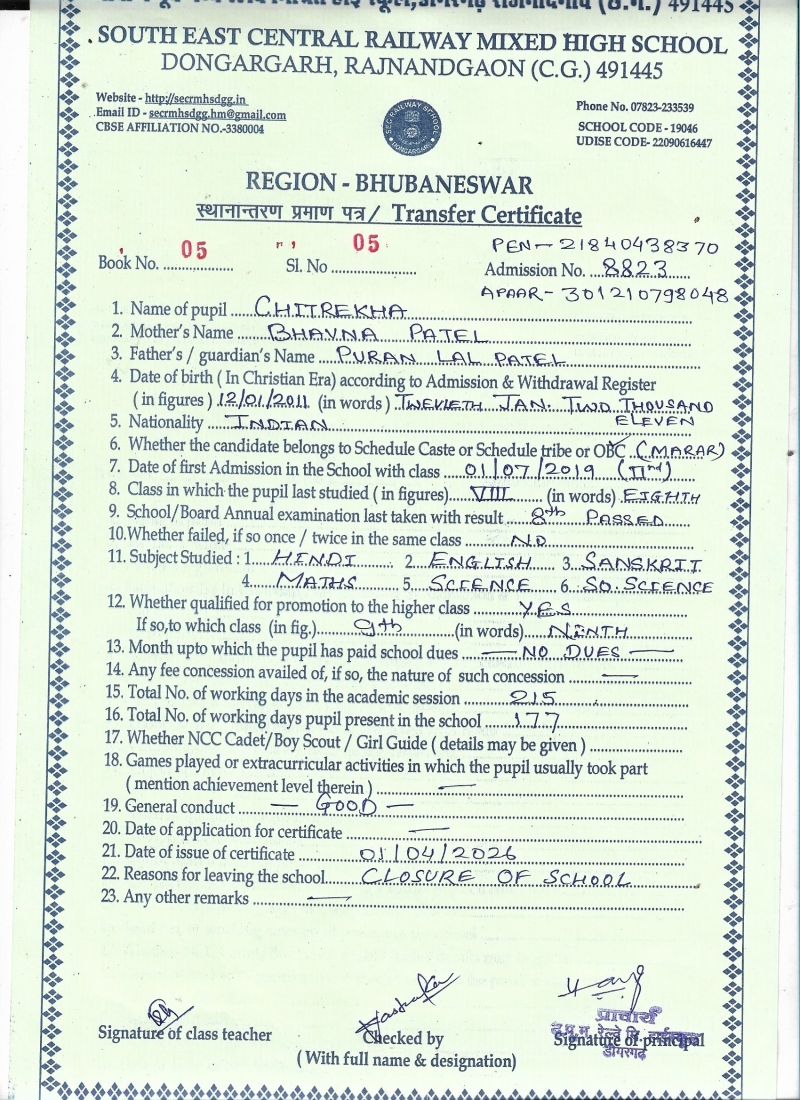 491445
SOUTH EAST CENTRAL RAILWAY MIXED HIGH SCHOOL
DONGARGARH, RAJNANDGAON (C.G.) 491445
Website - http://secrmhsdgg.in
Email ID - secrmhsdgg.hm@gmail.com
CBSE AFFILIATION NO.-3380004
Phone No. 07823-233539
SCHOOL CODE - 19046
UDISE CODE- 22090616447
REGION - BHUBANESWAR
स्थानान्तरण प्रमाण पत्र / Transfer Certificate
PEN- 21840438370
Book No. 05 Sl. No 05 Admission No. 8823
APAAR- 301210798048
1. Name of pupil CHITREKHA
2. Mother's Name BHAVNA PATEL
3. Father's / guardian's Name PURAN LAL PATEL
4. Date of birth ( In Christian Era) according to Admission & Withdrawal Register
( in figures ) 12/01/2011 (in words ) TWEVIETH JAN. TWO THOUSAND
ELEVEN
5. Nationality INDIAN
6. Whether the candidate belongs to Schedule Caste or Schedule tribe or OBC (MARAR)
7. Date of first Admission in the School with class 01/07/2019 (IInd)
8. Class in which the pupil last studied ( in figures) VIII (in words) EIGHTH
9. School/Board Annual examination last taken with result 8th PASSED
10.Whether failed, if so once / twice in the same class NO
11. Subject Studied : 1. HINDI 2. ENGLISH 3. SANSKRIT
4. MATHS 5. SCIENCE 6. SO. SCIENCE
12. Whether qualified for promotion to the higher class YES
If so,to which class (in fig.) 9th (in words) NINTH
13. Month upto which the pupil has paid school dues — NO DUES —
14. Any fee concession availed of, if so, the nature of such concession —
15. Total No. of working days in the academic session 215
16. Total No. of working days pupil present in the school 177
17. Whether NCC Cadet/Boy Scout / Girl Guide ( details may be given )
18. Games played or extracurricular activities in which the pupil usually took part
( mention achievement level therein ) —
19. General conduct — GOOD —
20. Date of application for certificate —
21. Date of issue of certificate 01/04/2026
22. Reasons for leaving the school CLOSURE OF SCHOOL
23. Any other remarks —
प्राचार्य
Signature of class teacher
Checked by
Signature of principal
डोंगरगढ़
( With full name & designation)